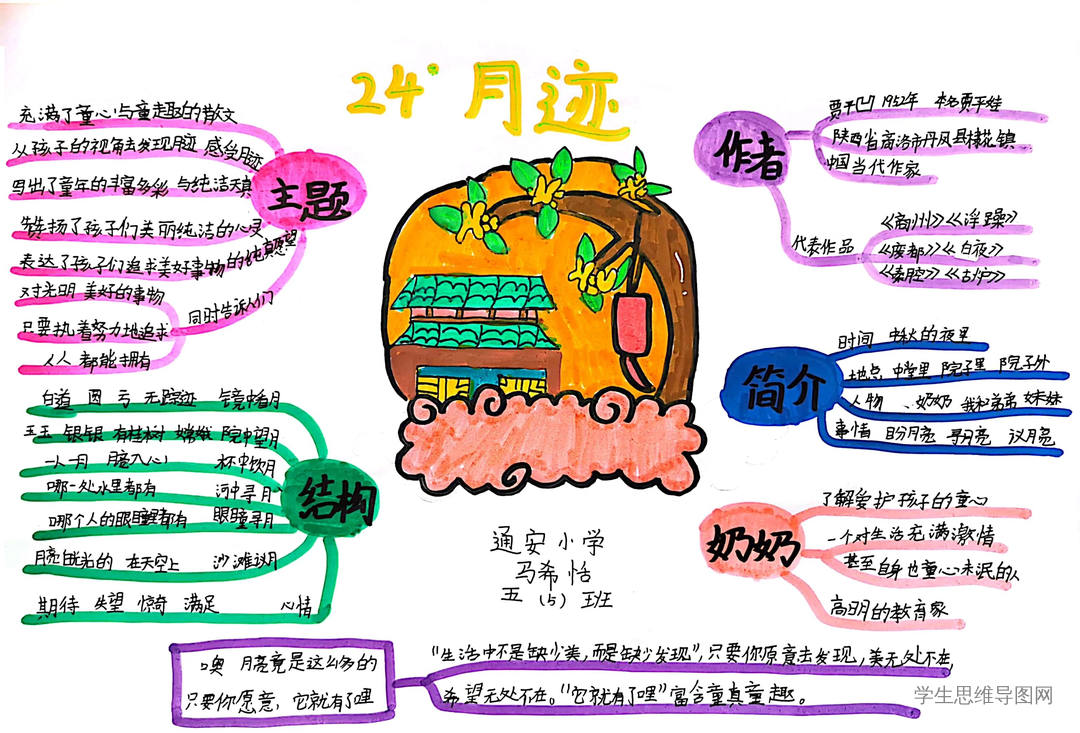 24 月迹
主题
充满了童心与童趣的散文
从孩子的视角去发现月迹 感受月迹
写出了童年的丰富多彩 与纯洁天真
赞扬了孩子们美丽纯洁的心灵
表达了孩子们追求美好事物的纯真愿望
同时告诉人们
对光明 美好的事物
只要执着努力地追求
人人 都能拥有
结构
白道 圆 亏 无踪迹 镜中看月
玉玉 银银 有桂树 嫦娥 院中望月
一人一月 月亮入心 杯中饮月
哪一处水里都有 河中寻月
哪个人的眼睛里都有 眼瞳寻月
月亮 的 在天空上 沙滩议月
期待 失望 惊奇 满足 心情
作者
贾平凹 1952年 本名贾平娃
陕西省商洛市丹凤县棣花镇
中国当代作家
代表作品
《商州》《浮躁》
《废都》《白夜》
《秦腔》《古炉》
简介
时间 中秋的夜里
地点 中堂里 院子里 院子外
人物 、奶奶 我和弟弟 妹妹
事情 盼月亮 寻月亮 议月亮
奶奶
了解爱护孩子的童心
一个对生活充满激情
甚至自身也童心未泯的人
高明的教育家
通安小学
马希恬
五(5)班
噢 月亮竟是这么多的
只要你愿意，它就有了哩
“生活中不是缺少美，而是缺少发现”，只要你愿意去发现，美无处不在，
希望无处不在。“它就有了哩”富含童真童趣。
学生思维导图网